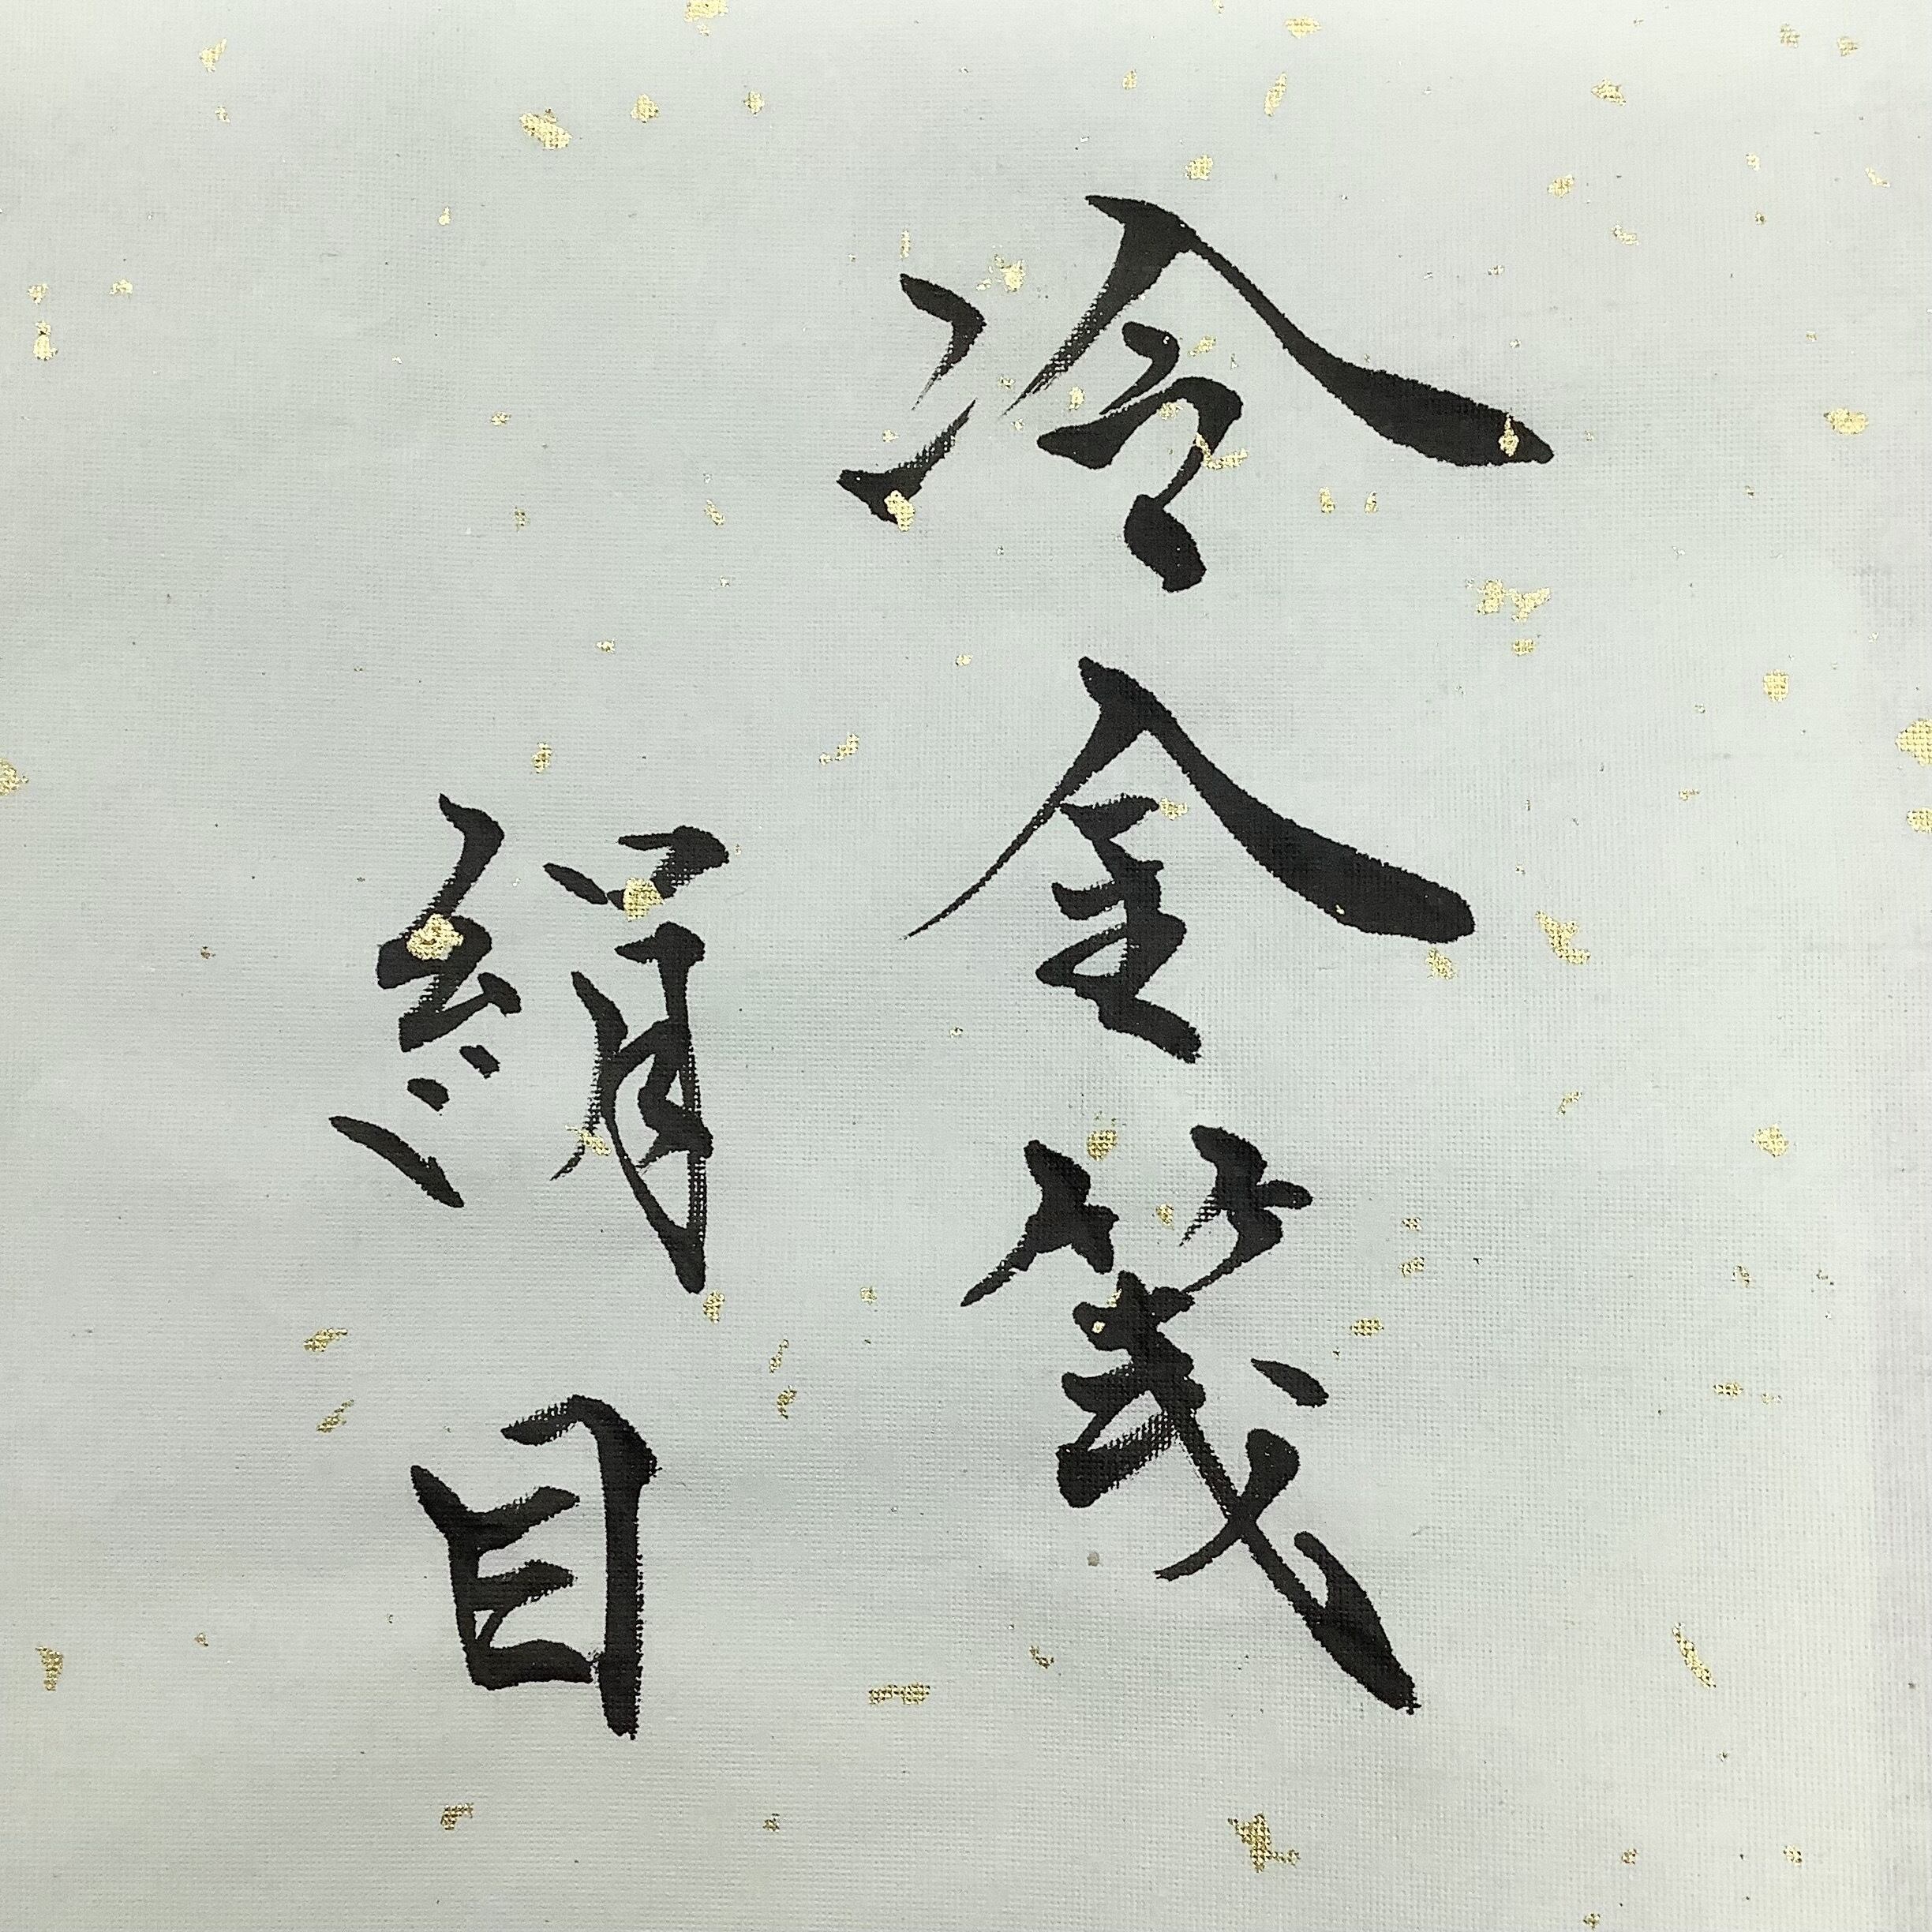 冷金箋
絹目